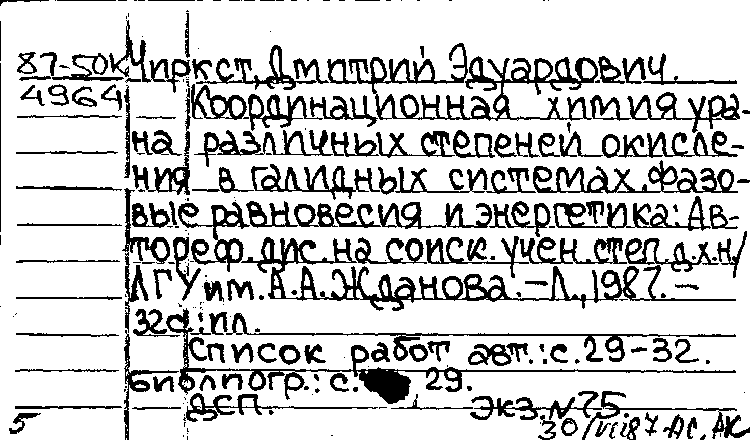 87-50К Чиркст, Дмитрий Эдуардович.
4964 Координационная химия ура-
на различных степеней окисле-
ния в галидных системах. Фазо-
вые равновесия и энергетика: Ав-
тореф. дис. на соиск. учен. степ. д.х.н. /
ЛГУ им. А.А. Жданова. - Л., 1987. -
32с.: ил.
Список работ авт.: с. 29-32.
Библиогр.: с. 29.
ДСП. Экз. №75.
5 30/VII87. АС, АК